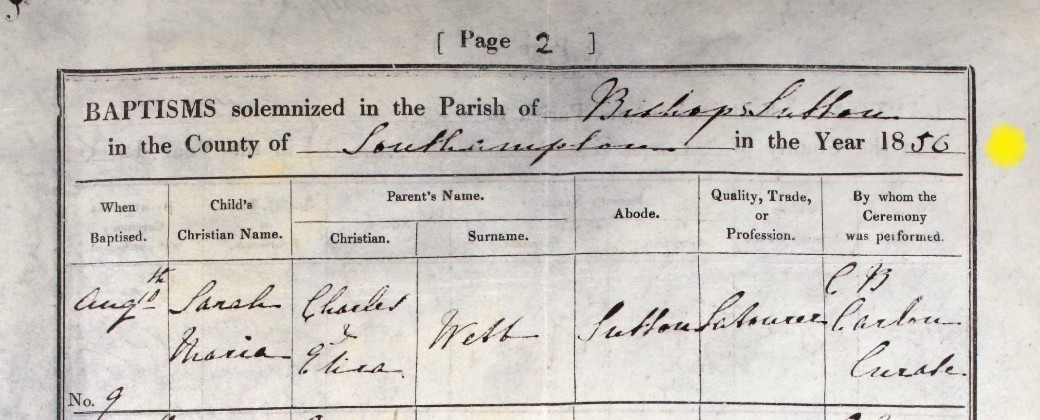 [ Page 2 ]
BAPTISMS solemnized in the Parish of Bishops Sutton
in the County of Southampton in the Year 1856
When Baptised.
Child's Christian Name.
Parent's Name.
Christian.
Surname.
Abode.
Quality, Trade, or Profession.
By whom the Ceremony was performed.
Augst 10th
Sarah
Maria
Charles
&
Eliza
Webb
Sutton
Labourer
C B
Carlon
Curate
No. 9